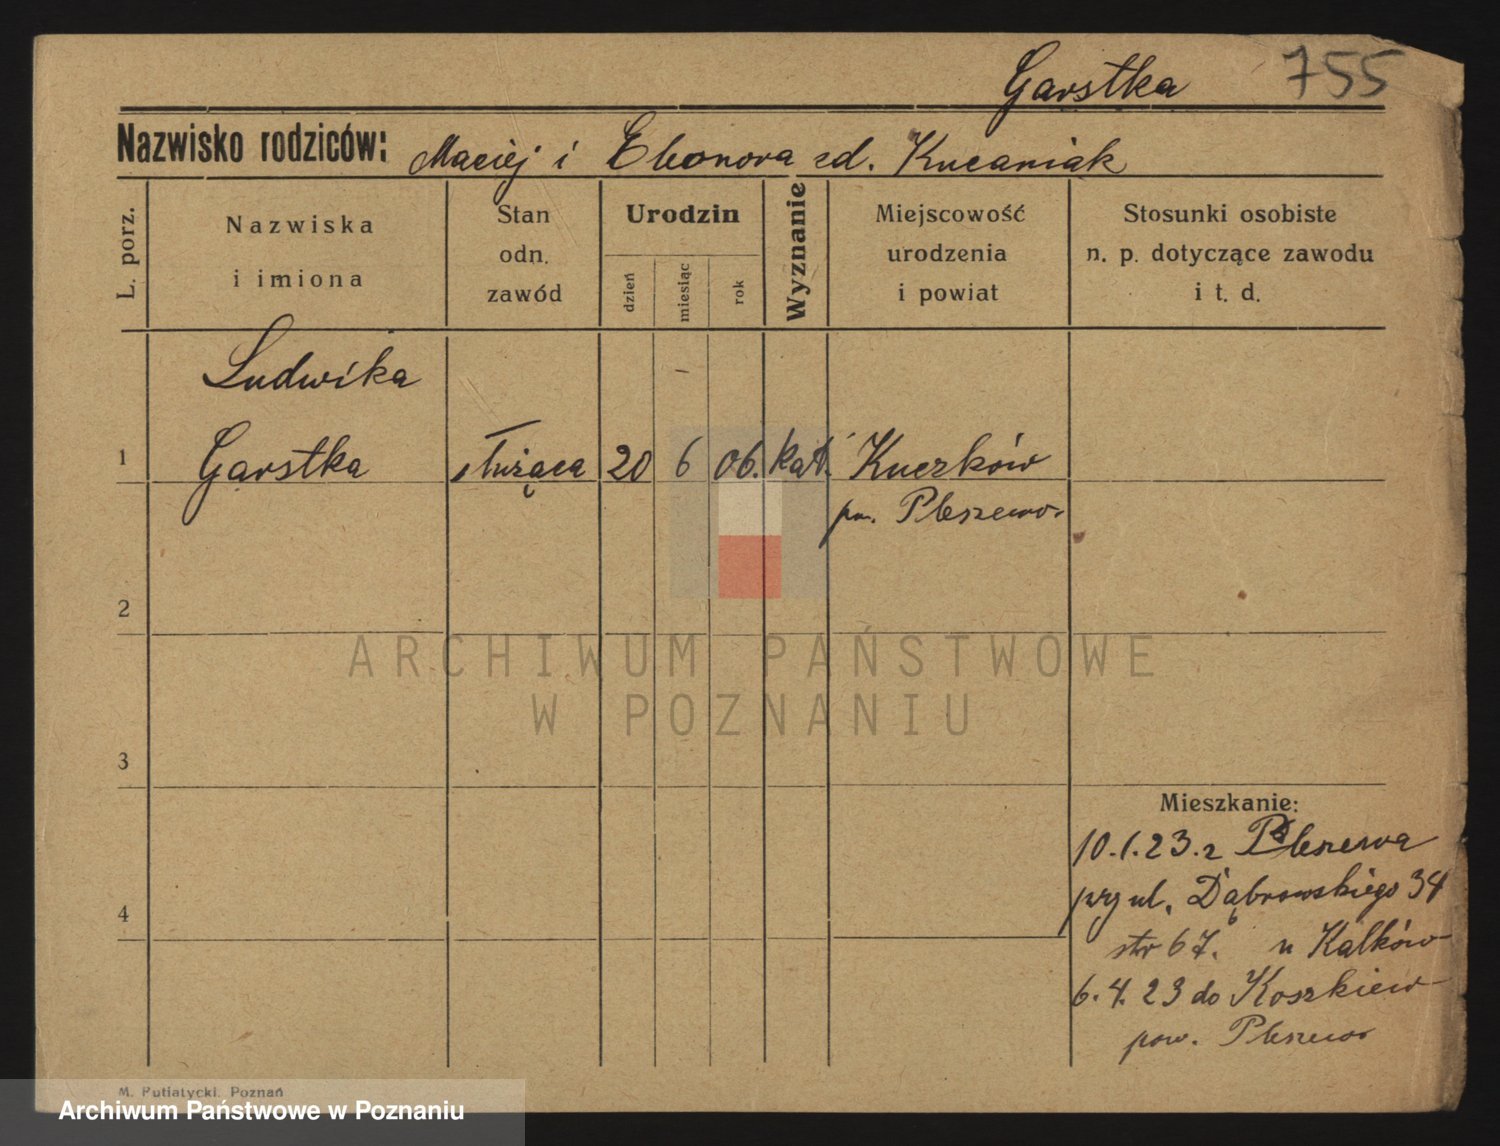 Garstka 755
Nazwisko rodziców: Maciej i Eleonora zd. Kucaniak
L. porz.
Nazwiska
i imiona
Stan
odn.
zawód
Urodzin
dzień
miesiąc
rok
Wyznanie
Miejscowość
urodzenia
i powiat
Stosunki osobiste
n. p. dotyczące zawodu
i t. d.
Ludwika
1 Garstka służąca 20 6 06. kat. Kuczków
pw. Pleszewo.
2
ARCHIWUM PAŃSTWOWE
W POZNANIU
3
Mieszkanie:
10.1.23. z Pleszewa
przy ul. Dąbrowskiego 34
str 67. u Kalków
4
6.4.23 do Koszkiew
pow. Pleszewo
M. Putiatycki, Poznań
Archiwum Państwowe w Poznaniu